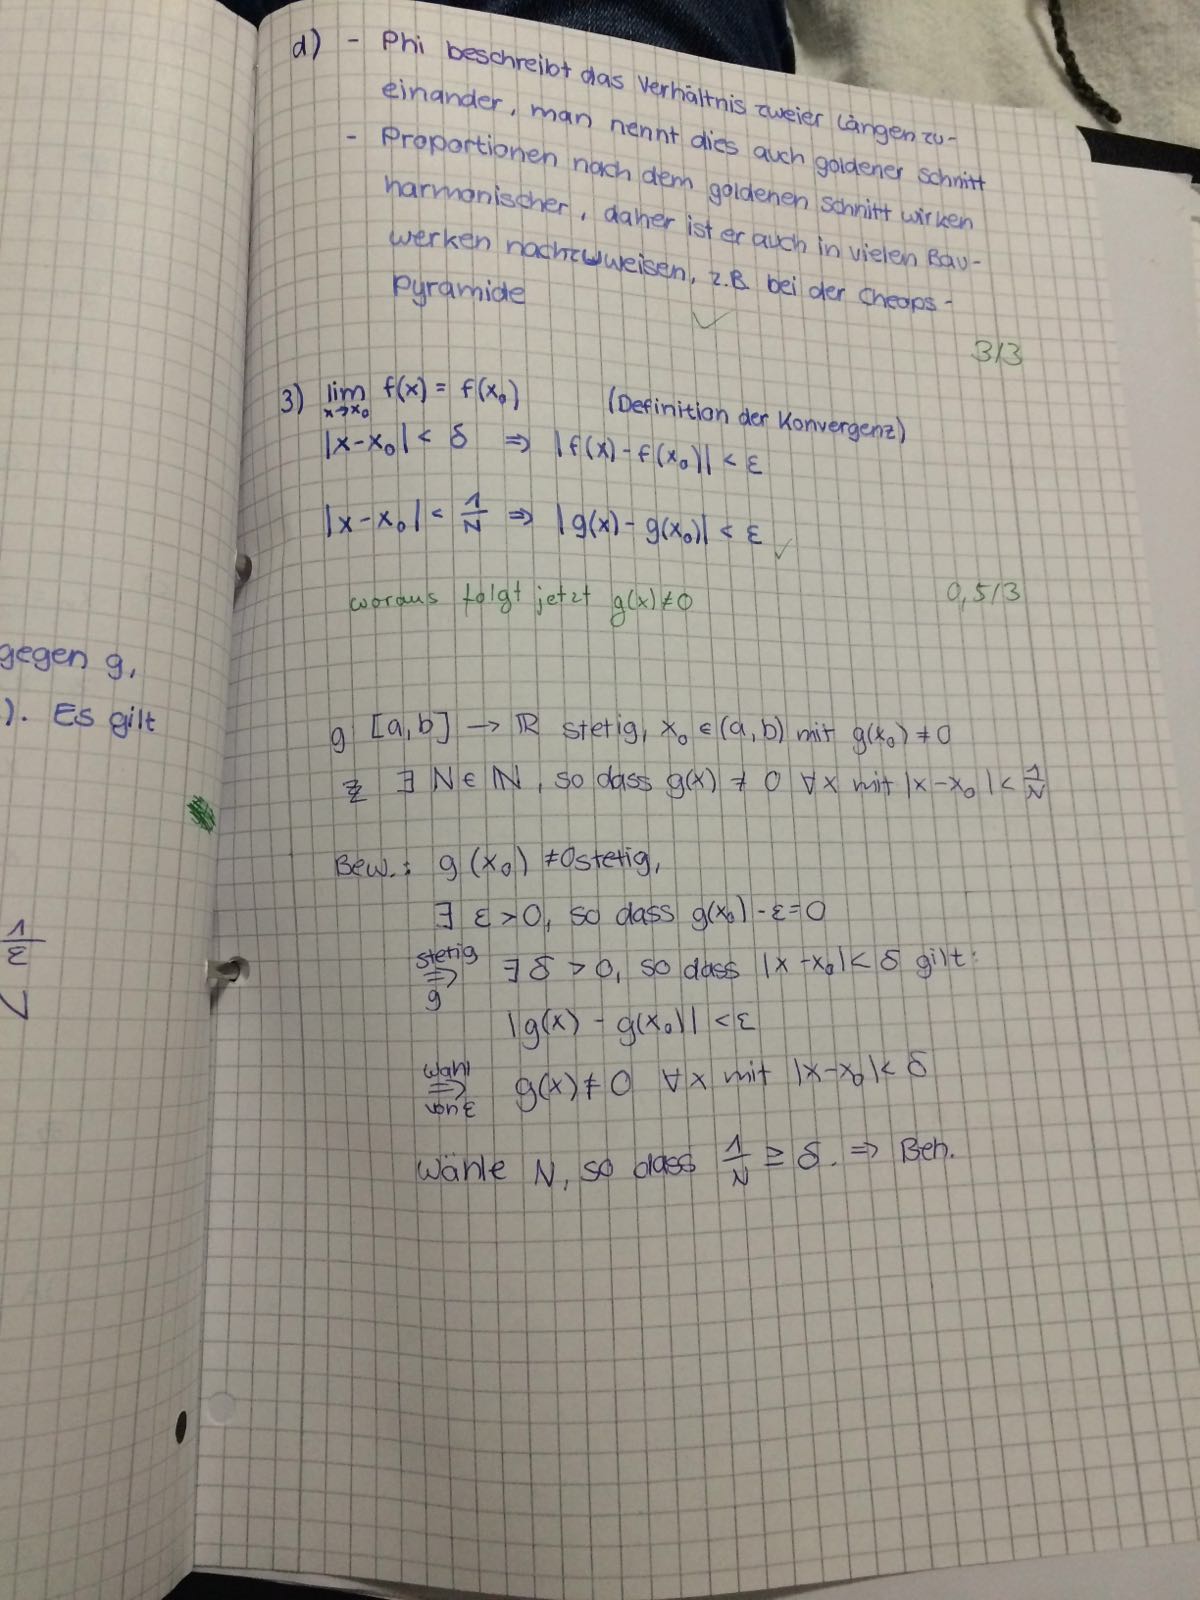 gegen g,
). Es gilt
1/ε
d) - Phi beschreibt das Verhältnis zweier Längen zu-
einander, man nennt dies auch goldener Schnitt
- Proportionen nach dem goldenen Schnitt wirken
harmonischer, daher ist er auch in vielen Bau-
werken nachzuweisen, z.B. bei der Cheops-
Pyramide
✓
3/3
3) lim x→x₀ f(x) = f(x₀) (Definition der Konvergenz)
|x-x₀| < δ ⇒ |f(x)-f(x₀)| < ε
|x-x₀| < 1/N ⇒ |g(x)-g(x₀)| < ε ✓
woraus folgt jetzt g(x)≠0 0,5/3
g [a,b] → ℝ stetig, x₀ ∈ (a,b) mit g(x₀) ≠ 0
ZZ ∃ N ∈ ℕ, so dass g(x) ≠ 0 ∀x mit |x-x₀| < 1/N
Bew.: g(x₀) ≠0 stetig,
∃ ε > 0, so dass g(x₀) - ε = 0
stetig ⇒ g ∃ δ > 0, so dass |x-x₀| < δ gilt:
|g(x) - g(x₀)| < ε
Wahl ⇒ von ε g(x) ≠ 0 ∀x mit |x-x₀| < δ
Wähle N, so dass 1/N ≥ δ. ⇒ Beh.